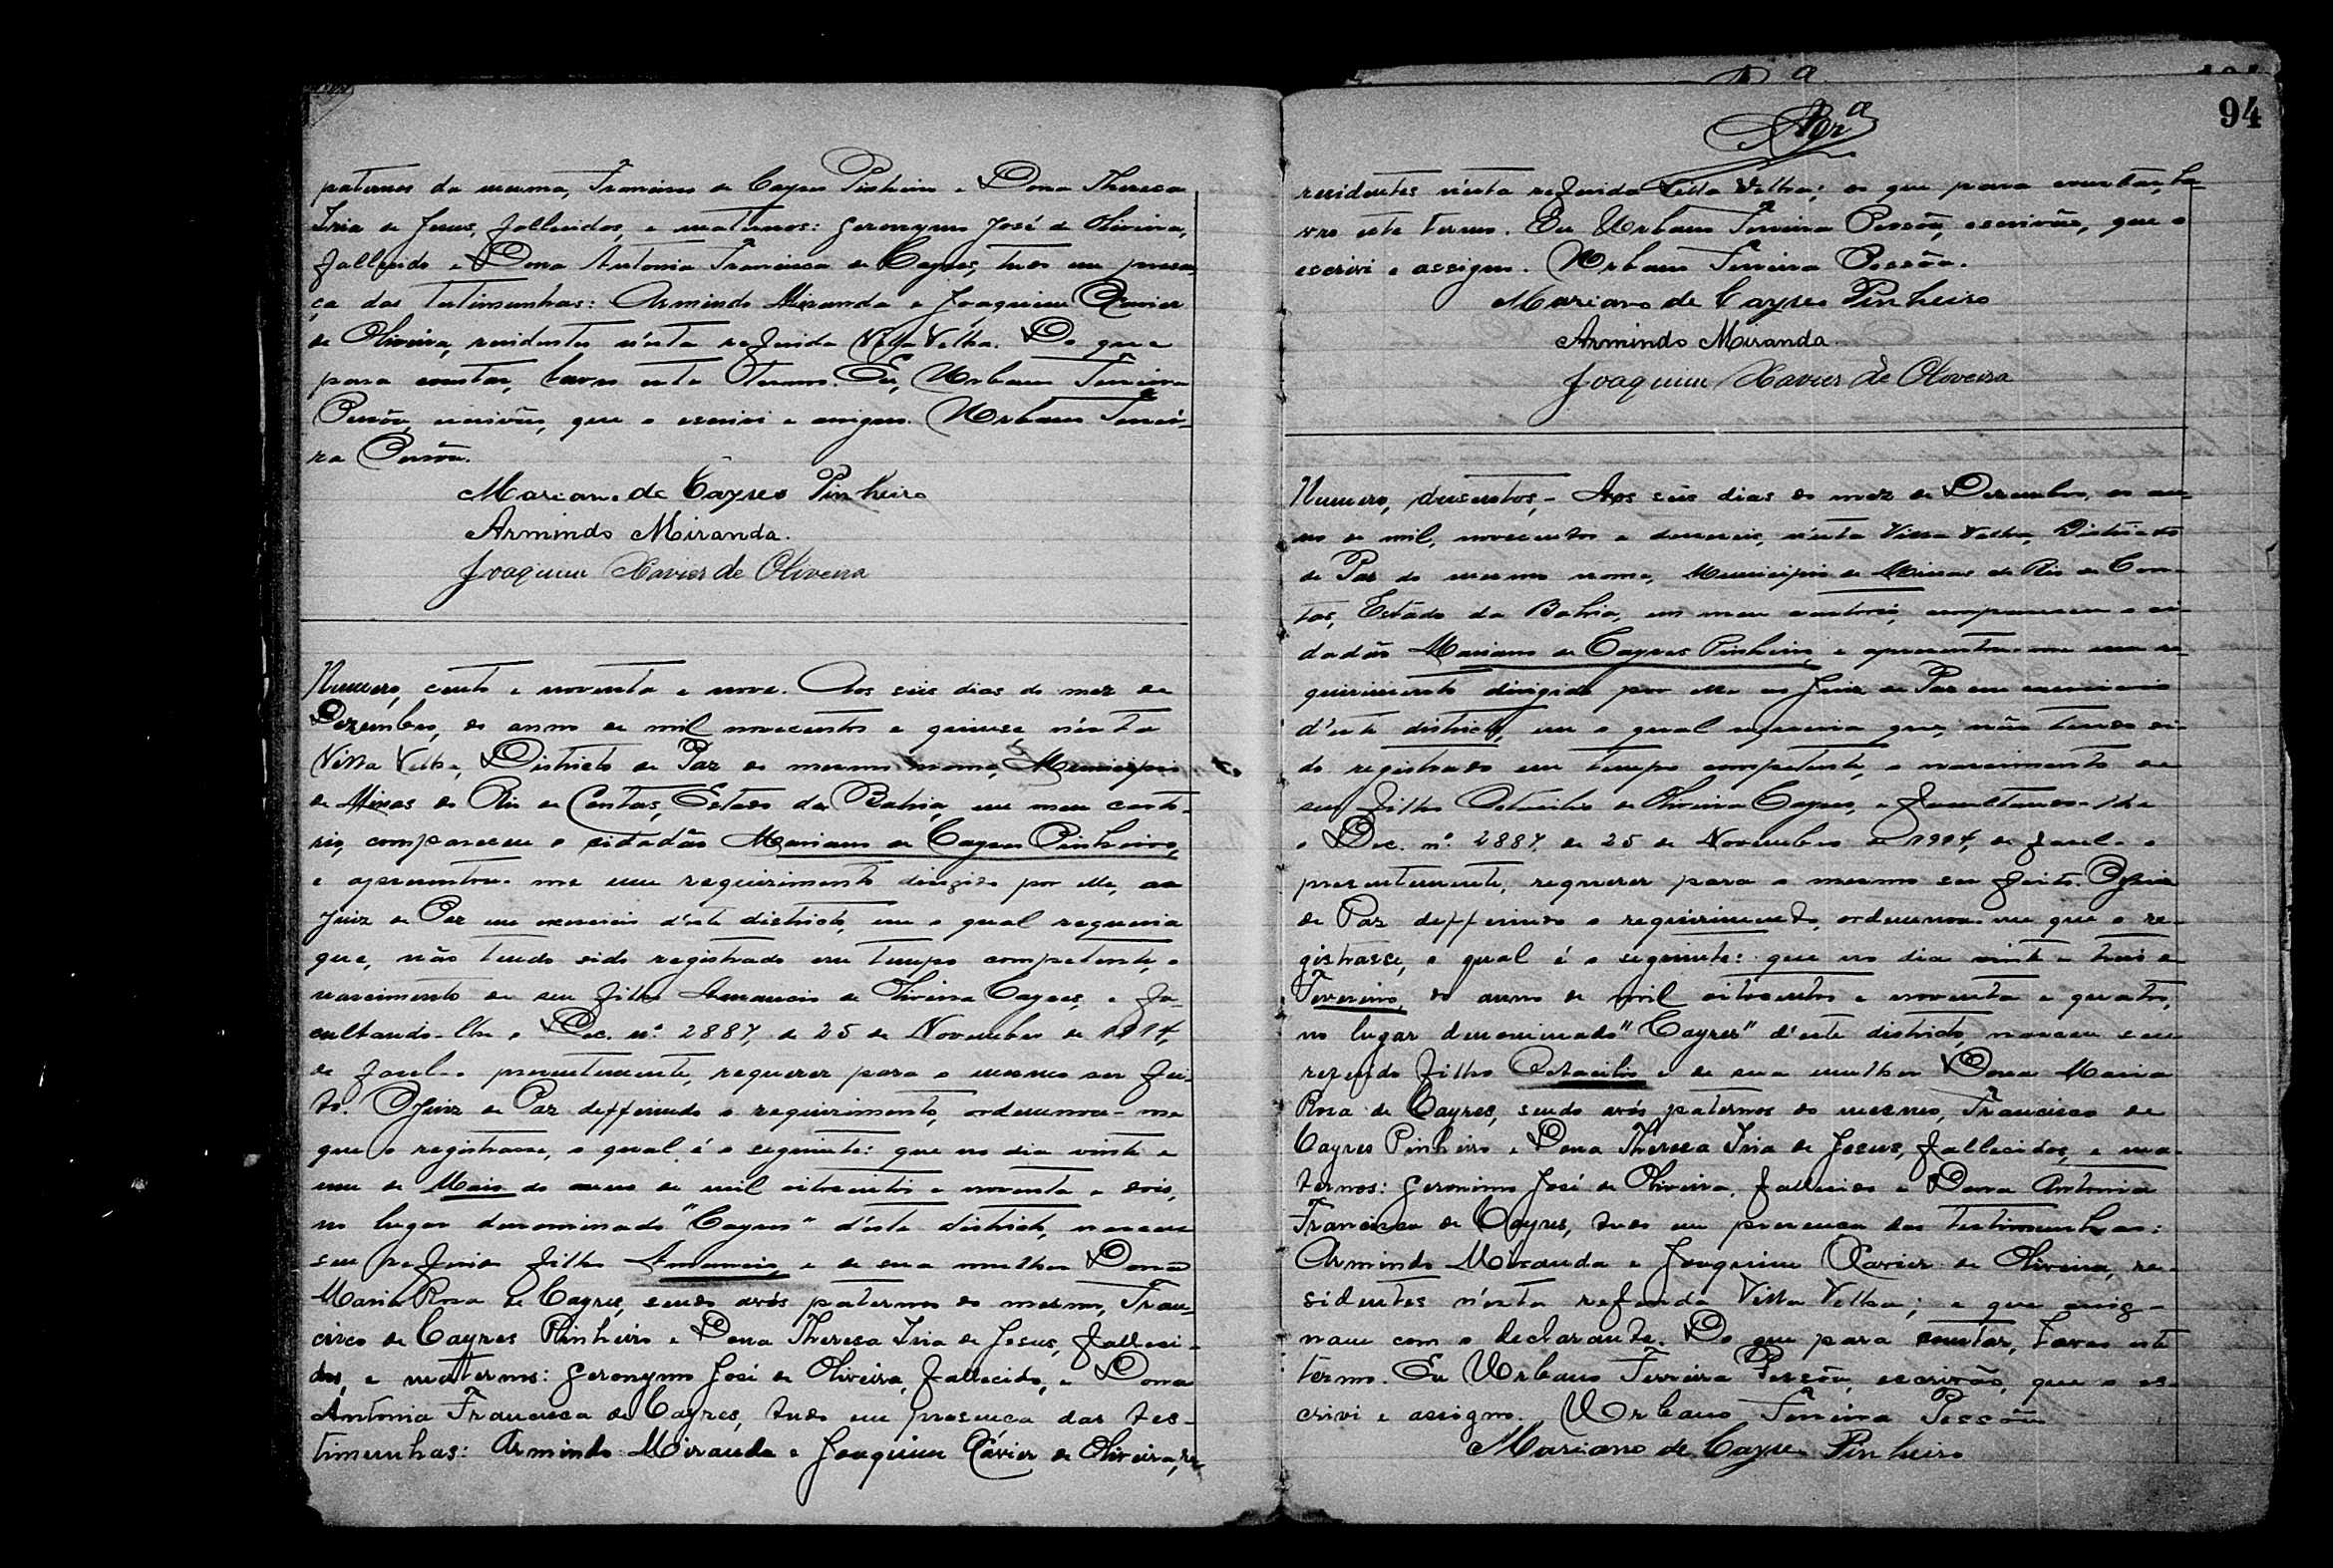 paternos da mesma, Francisco de Cayres Pinheiro e Dona Thereza
Iria de Jesus, fallecidos, e maternos: Geronymo José de Oliveira,
fallecido e Dona Antonia Francisca de Cayres, tudo em presen-
ça das testimunhas: Armindo Miranda e Joaquim Xavier
de Oliveira, residentes n'esta referida Villa Velha. Do que
para constar, lavro este termo. Eu, Urbano Ferreira
Pessôa, escrivão, que o escrivi e assigno. Urbano Ferrei-
ra Pessôa.
Mariano de Cayres Pinheiro
Armindo Miranda.
Joaquim Xavier de Oliveira
Numero, cento e noventa e nove. Aos seis dias do mez de
Dezembro, do anno de mil novecentos e quinse n'esta
Villa Velha, Districto de Paz do mesmo nome, Municipio
de Minas do Rio de Contas, Estado da Bahia, em meu carto-
rio, compareceu o cidadão Mariano de Cayres Pinheiro,
e apresentou-me um requirimento dirigido por elle, ao
Juiz de Paz em exercicio d'este districto, em o qual requeria
que, não tendo sido registrado em tempo competente, o
nascimento de seu filho Amancio de Oliveira Cayres, e fa-
cultando-lhe o Dec. nº 2887, de 25 de Novembro de 1914,
de fasel-o presentemente, requerer para o mesmo ser fei-
to. O Juiz de Paz defferindo o requirimento, ordennou-me
que o registrasse, o qual é o seguinte: que no dia vinte e
um de Maio do anno de mil oitocentos e noventa e dois,
no lugar denominado "Cayres" d'este districto, nasceu
seu referido filho Amancio, e de sua mulher Dona
Maria Rosa de Cayres, sendo avós paternos do mesmo, Fran-
cisco de Cayres Pinheiro e Dona Thereza Iria de Jesus, falleci-
dos, e maternos: Geronymo José de Oliveira, fallecido, e Dona
Antonia Francisca de Cayres, tudo em presença das tes-
timunhas: Armindo Miranda e Joaquim Xavier de Oliveira, re-
94
residentes n'esta referida Villa Velha; do que para constar, la-
vro este termo. Eu Urbano Ferreira Pessôa, escrivão, que o
escrivi e assigno. Urbano Ferreira Pessôa.
Mariano de Cayres Pinheiro
Armindo Miranda.
Joaquim Xavier de Oliveira
Numero, dusentos,- Aos seis dias do mez de Dezembro, do an-
no de mil, novecentos e n'esta Villa Velha, Districto
de Paz do mesmo nome, Municipio de Minas do Rio de Con-
tas, Estado da Bahia, em meu cartorio, compareceu o ci-
dadão Mariano de Cayres Pinheiro, e apresentou-me um re-
quirimento dirigido por elle ao Juiz de Paz em exercicio
d'este districto, em o qual requeria que, não tendo si-
do registrado em tempo competente, o nascimento de
seu filho Octacilio de Oliveira Cayres, e facultando-lhe
o Dec. nº 2887, de 25 de Novembro de 1914, de fasel-o
presentemente, requerer para o mesmo ser feito. O Juiz
de Paz defferindo o requirimento, ordennou-me que o re-
gistrasse, o qual é o seguinte: que no dia vinte e tres de
Fevereiro, do anno de mil oitocentos e noventa e quatro,
no lugar denominado "Cayres" d'este districto, nasceu seu
referido filho Octacilio e de sua mulher Dona Maria
Rosa de Cayres, sendo avós paternos do mesmo, Francisco de
Cayres Pinheiro e Dona Thereza Iria de Jesus, fallecidos, e ma-
ternos: Geronimo José de Oliveira, fallecido e Dona Antonia
Francisca de Cayres, tudo em presença das testimunhas:
Armindo Miranda e Joaquim Xavier de Oliveira, re-
sidentes n'esta referida Villa Velha; e que assig-
nam com o declarante. Do que para constar, lavro este
termo. Eu Urbano Ferreira Pessôa, escrivão, que o es-
crivi e assigno. Urbano Ferreira Pessôa
Mariano de Cayres Pinheiro